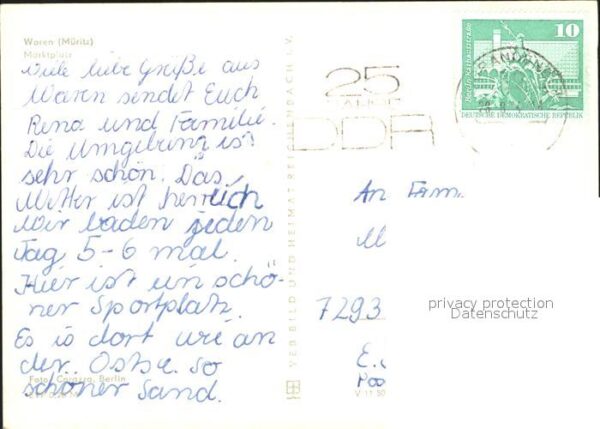 Waren (Müritz)
Marktplatz
Viele liebe Grüße aus
Waren sendet Euch
Rena und Familie.
Die Umgebung ist
sehr schön. Das
Wetter ist herrlich
Wir baden jeden
Tag 5-6 mal.
Hier ist ein schö-
ner Sportplatz.
Es is dort wie an
der Ostse. so
schöner Sand.
Foto: Berlin
VEB BILD UND HEIMAT REICHENBACH I. V.
V 11 50
25
JAHRE
DDR
10
Berlin, Rathausstraße
DEUTSCHE DEMOKRATISCHE REPUBLIK
An Fam.
M
7293
E.
privacy protection
Datenschutz